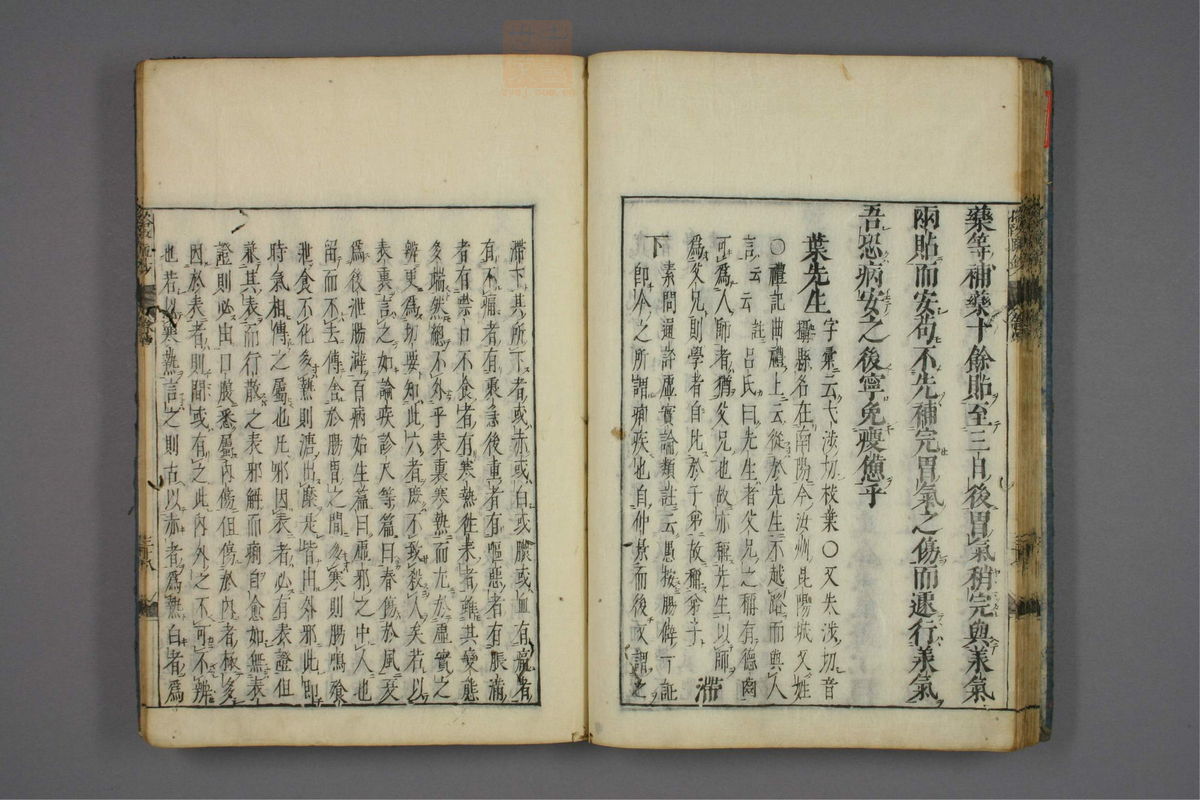 藥等補藥十餘貼至三日後胃氣稍完與承氣
兩貼而安苟不先補完胃氣之傷而遽行承氣
吾恐病安之後寧免瘦憊乎
葉先生
字彙云弋涉切枝葉○又失涉切音
攝縣名在南陽今汝州昆陽城又姓
○禮記曲禮上云從於先生不越路而與人
言云云註呂氏曰先生者父兄之稱有德齒
可為人師者猶父兄也故亦稱先生以師
為父兄則學者自比於子弟故稱弟子
滯
下
素問通評虛實論類註云愚按腸澼一証
即今之所謂痢疾也自仲景而後又謂之
滯下其所下者或赤或白或膿或血有痛者
有不痛者有裏急後重者有嘔惡者有脹滿
者有禁口不食者有寒熱往來者雖其變態
多端然總不外乎表裏寒熱而尤於虛實之
辨更為切要知此六者庶不致殺人矣若以
表裏言之如論疾診尺等篇曰春傷於風夏
為後泄腸澼百病始生篇曰虛邪之中人也
留而不去傳舍於腸胃之間多寒則腸鳴飧
泄食不化多熱則溏出麋是皆由外邪此即
時氣相傳之屬也凡邪因表者必有表證但
兼其表而行散之表邪解而痢自愈如無表
證則必由口腹悉屬內傷但傷於內者極多
因於表者則間或有之此內外之不可不辨
也若以寒熱言之則古以赤者為熱白者為